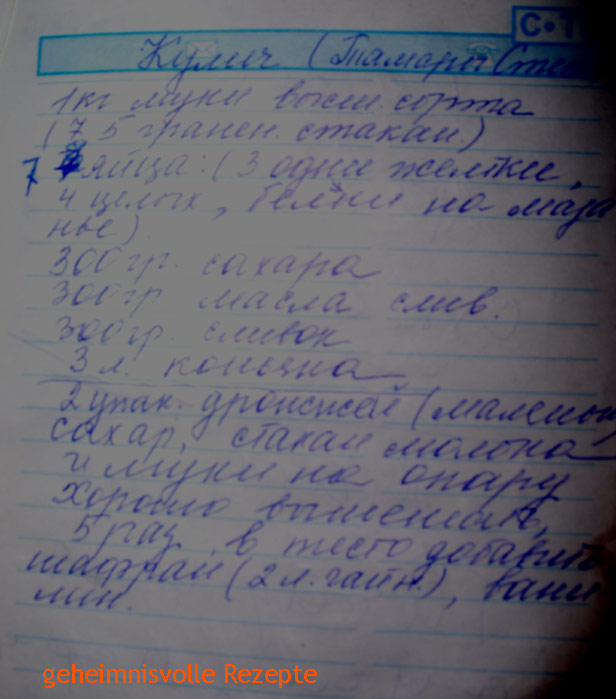 С•Т
Кулич (Тамары
1 кг муки высш. сорта
(7 5 гранен. стакан)
7 яйца: (3 одни желтки,
4 целых, белки на маза
нье)
300 гр. сахара
300 гр масла слив.
300 гр. сливок
3 л. коньяка
2 упак. дрожжей (малень
сахар, стакан молока
и муки на опару
Хорошо вымешать,
5 раз, в тесто добавить
шафран (2 л. чайн.), вани
лин.
geheimnisvolle Rezepte